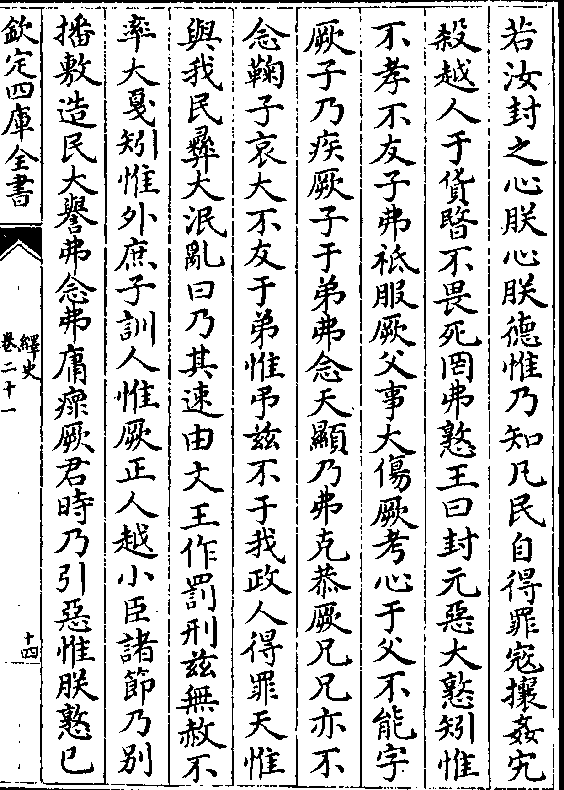 若汝封之心朕心朕德惟乃知凡民自得罪寇攘姦宄
殺越人于貨暋不畏死罔弗憝王曰封元惡大憝矧惟
不孝不友子弗祗服厥父事大傷厥考心于父不能字
厥子乃疾厥子于弟弗念天顯乃弗克恭厥兄兄亦不
念鞠子哀大不友于弟惟弔茲不于我政人得罪天惟
與我民彝大泯亂曰乃其速由文王作罰刑茲無赦不
率大戛矧惟外庶子訓人惟厥正人越小臣諸節乃别
播敷造民大譽弗念弗庸瘝厥君時乃引惡惟朕憝已
欽定四庫全書
繹史
卷二十一
十四